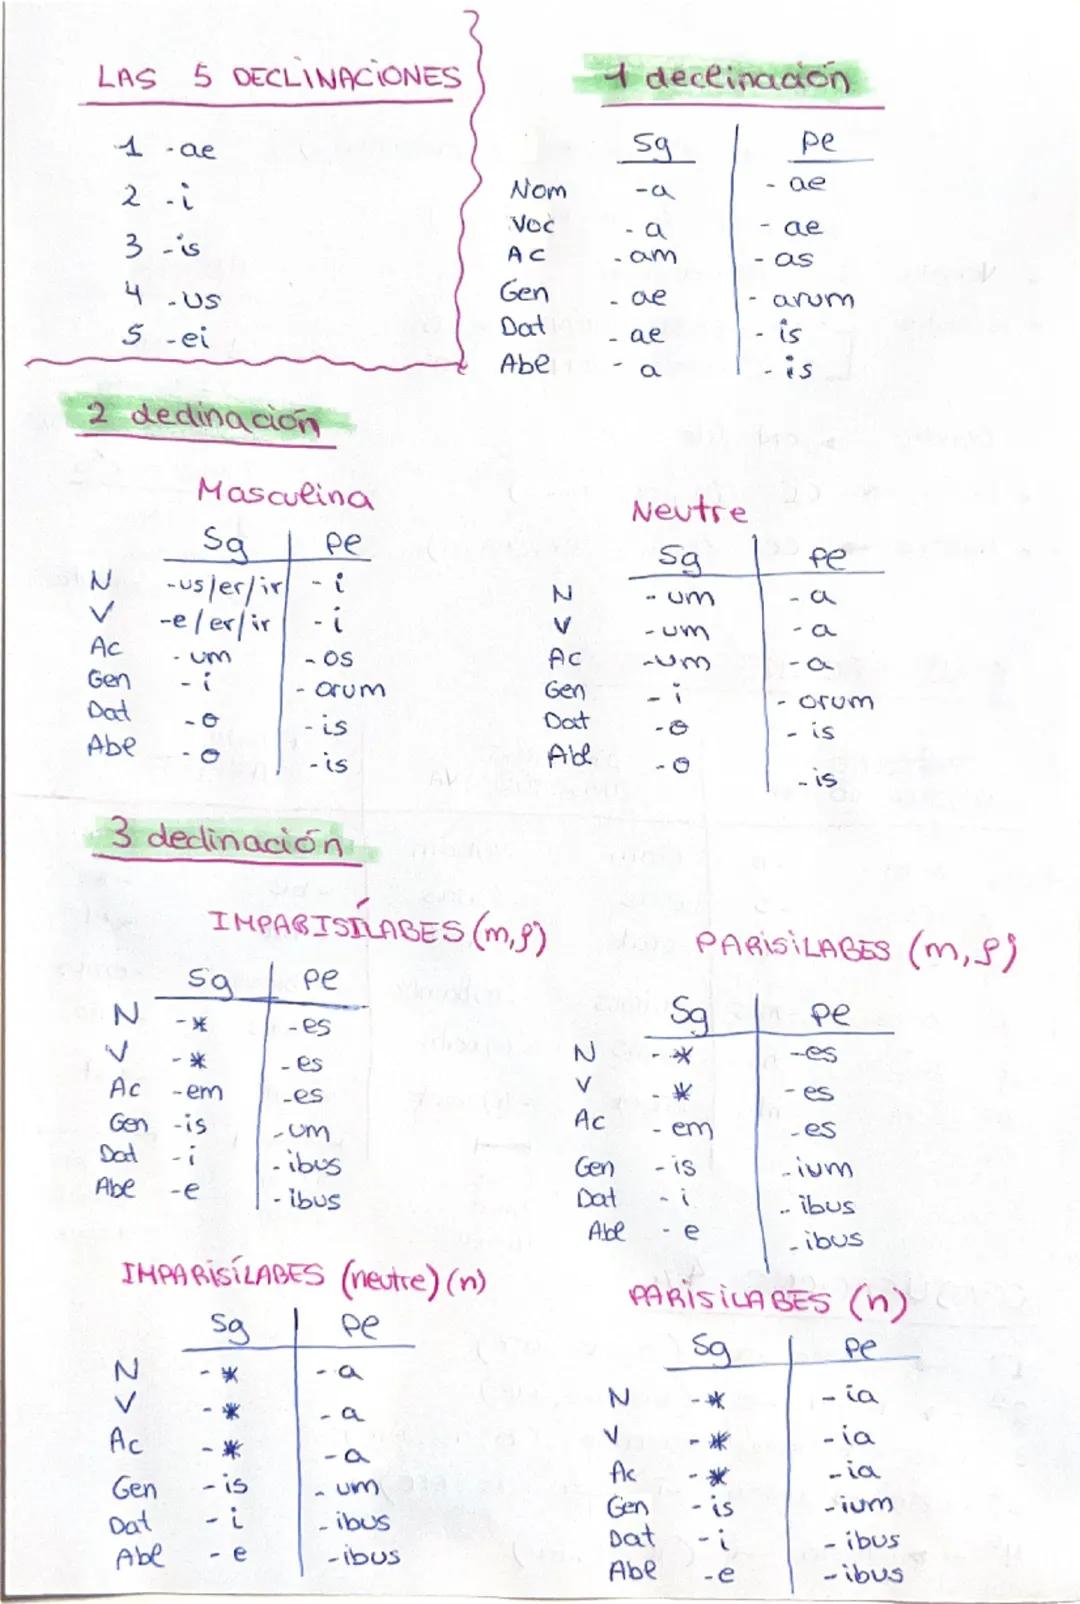 LAS 5 DECLINACIONES
1 -ae
2 -i
3 -is
4 -us
5 -ei
1 declinación
Sg Pl
Nom -a -ae
Voc -a -ae
Ac -am -as
Gen -ae -arum
Dat -ae -is
Abl -a -is
2 declinación
Masculina
Sg Pl
N -us/er/ir -i
V -e/er/ir -i
Ac -um -os
Gen -i -orum
Dat -o -is
Abl -o -is
Neutre
Sg Pl
N -um -a
V -um -a
Ac -um -a
Gen -i -orum
Dat -o -is
Abl -o -is
3 declinación
IMPARISÍLABES (m,f)
Sg Pl
N -* -es
V -* -es
Ac -em -es
Gen -is -um
Dat -i -ibus
Abl -e -ibus
PARISILABES (m,f)
Sg Pl
N -* -es
V -* -es
Ac -em -es
Gen -is -ium
Dat -i -ibus
Abl -e -ibus
IMPARISÍLABES (neutre) (n)
Sg Pl
N -* -a
V -* -a
Ac -* -a
Gen -is -um
Dat -i -ibus
Abl -e -ibus
PARISILABES (n)
Sg Pl
N -* -ia
V -* -ia
Ac -* -ia
Gen -is -ium
Dat -i -ibus
Abl -e -ibus